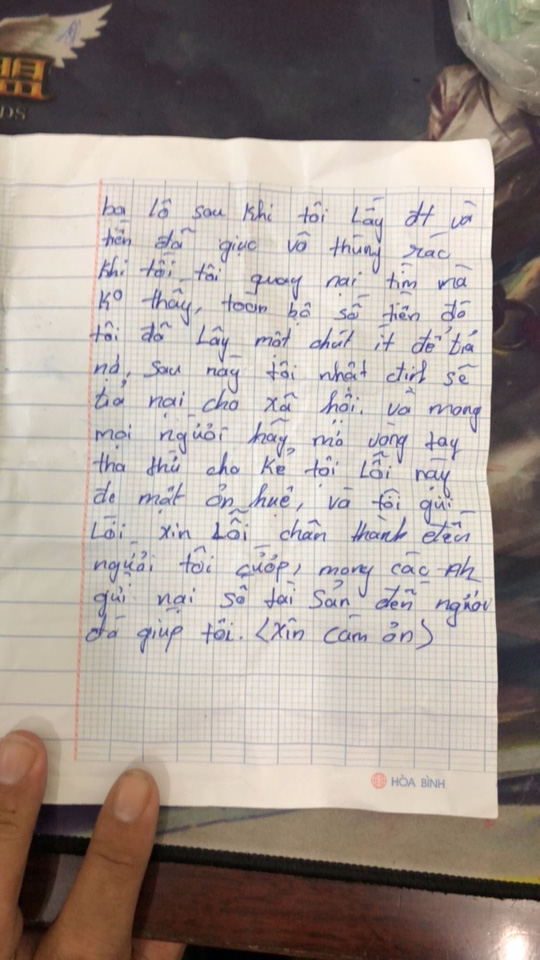 DS
ba lô sau khi tôi Lấy đt và
tiền đã giục vô thùng rác
khi tối tôi quay nai tìm mà
ko thấy, toàn bộ số tiền đó
tôi đã Lấy một chút ít để tiả
nợ, sau này tôi nhất định sẽ
tiả nai cho xã hội. và mong
mọi người hãy mở vòng tay
tha thứ cho kẻ tội Lỗi này
đc một ơn huệ, và tôi gửi
Lời xin Lỗi chân thành đến
người tôi cướp, mong các Ah
gửi nại số tài Sản đến người
đó giúp tôi. (xin cảm ơn)
HÒA BÌNH